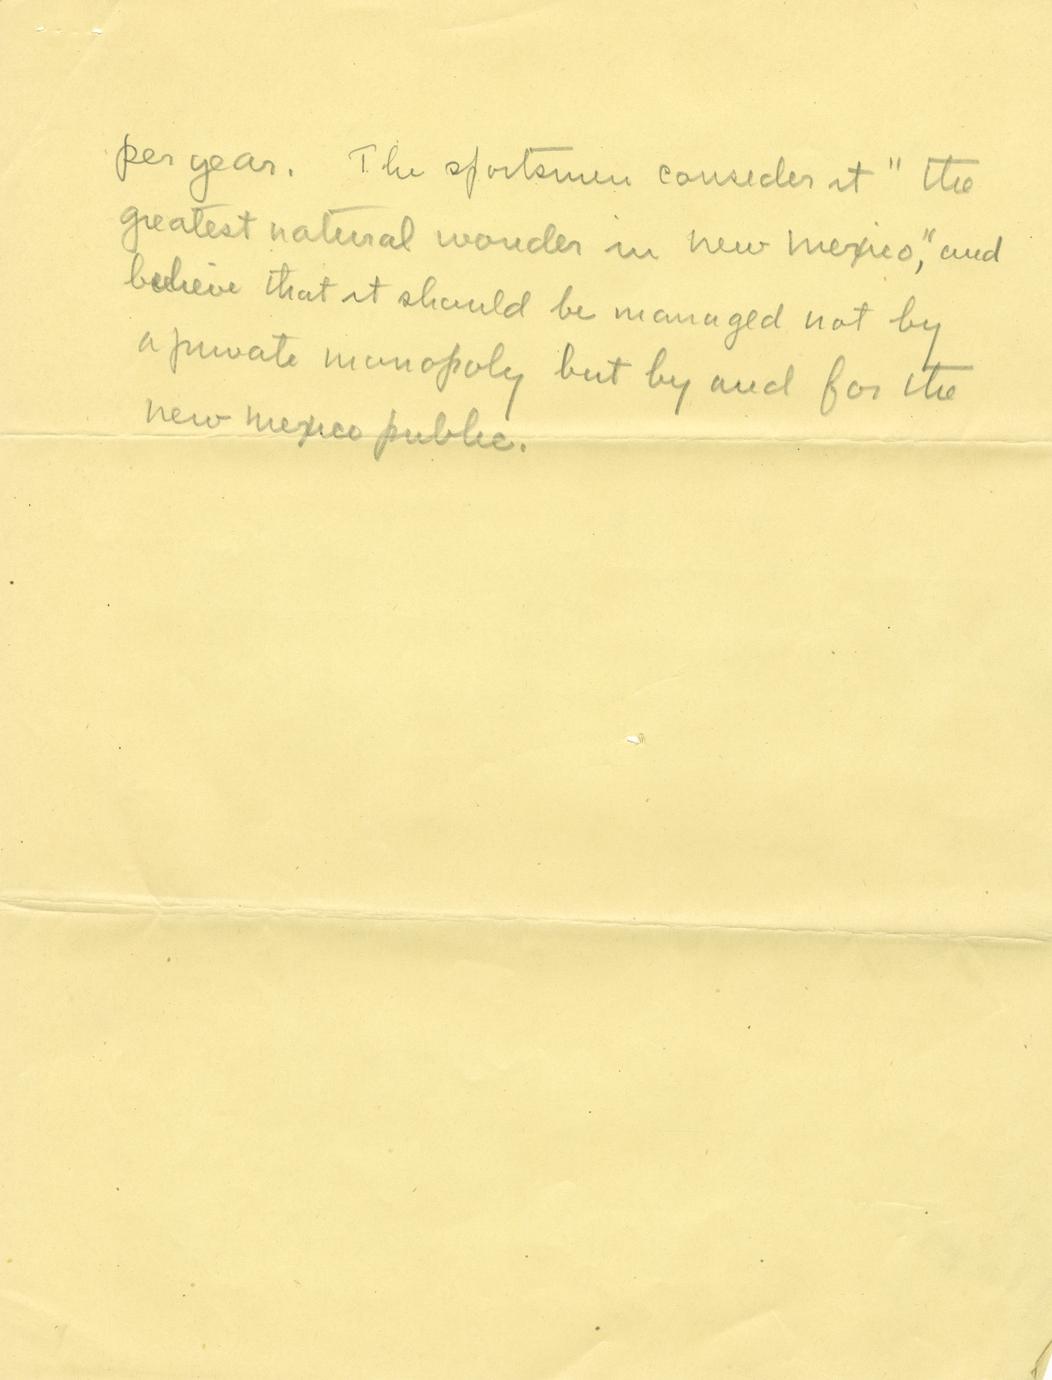 per year. The sportsmen consider it "the
greatest natural wonder in new mexico," and
believe that it should be managed not by
a private monopoly but by and for the
new mexico public.